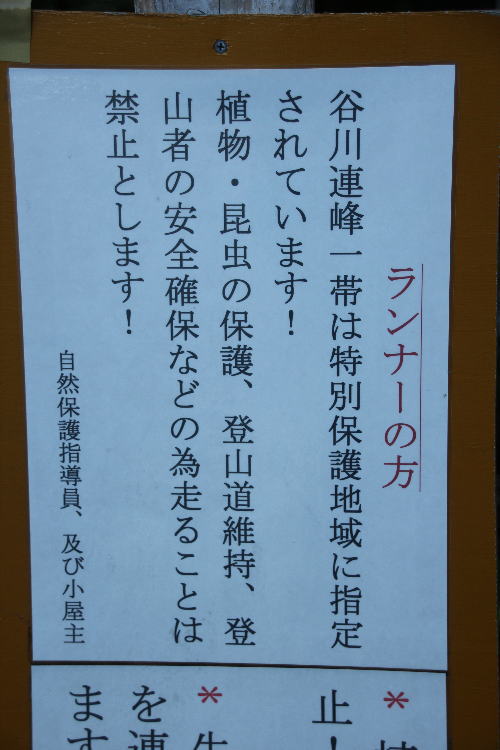 ランナーの方
谷川連峰一帯は特別保護地域に指定
されています！
植物・昆虫の保護、登山道維持、登
山者の安全確保などの為走ることは
禁止とします！
自然保護指導員、及び小屋主
*
止！
*
を連
ます